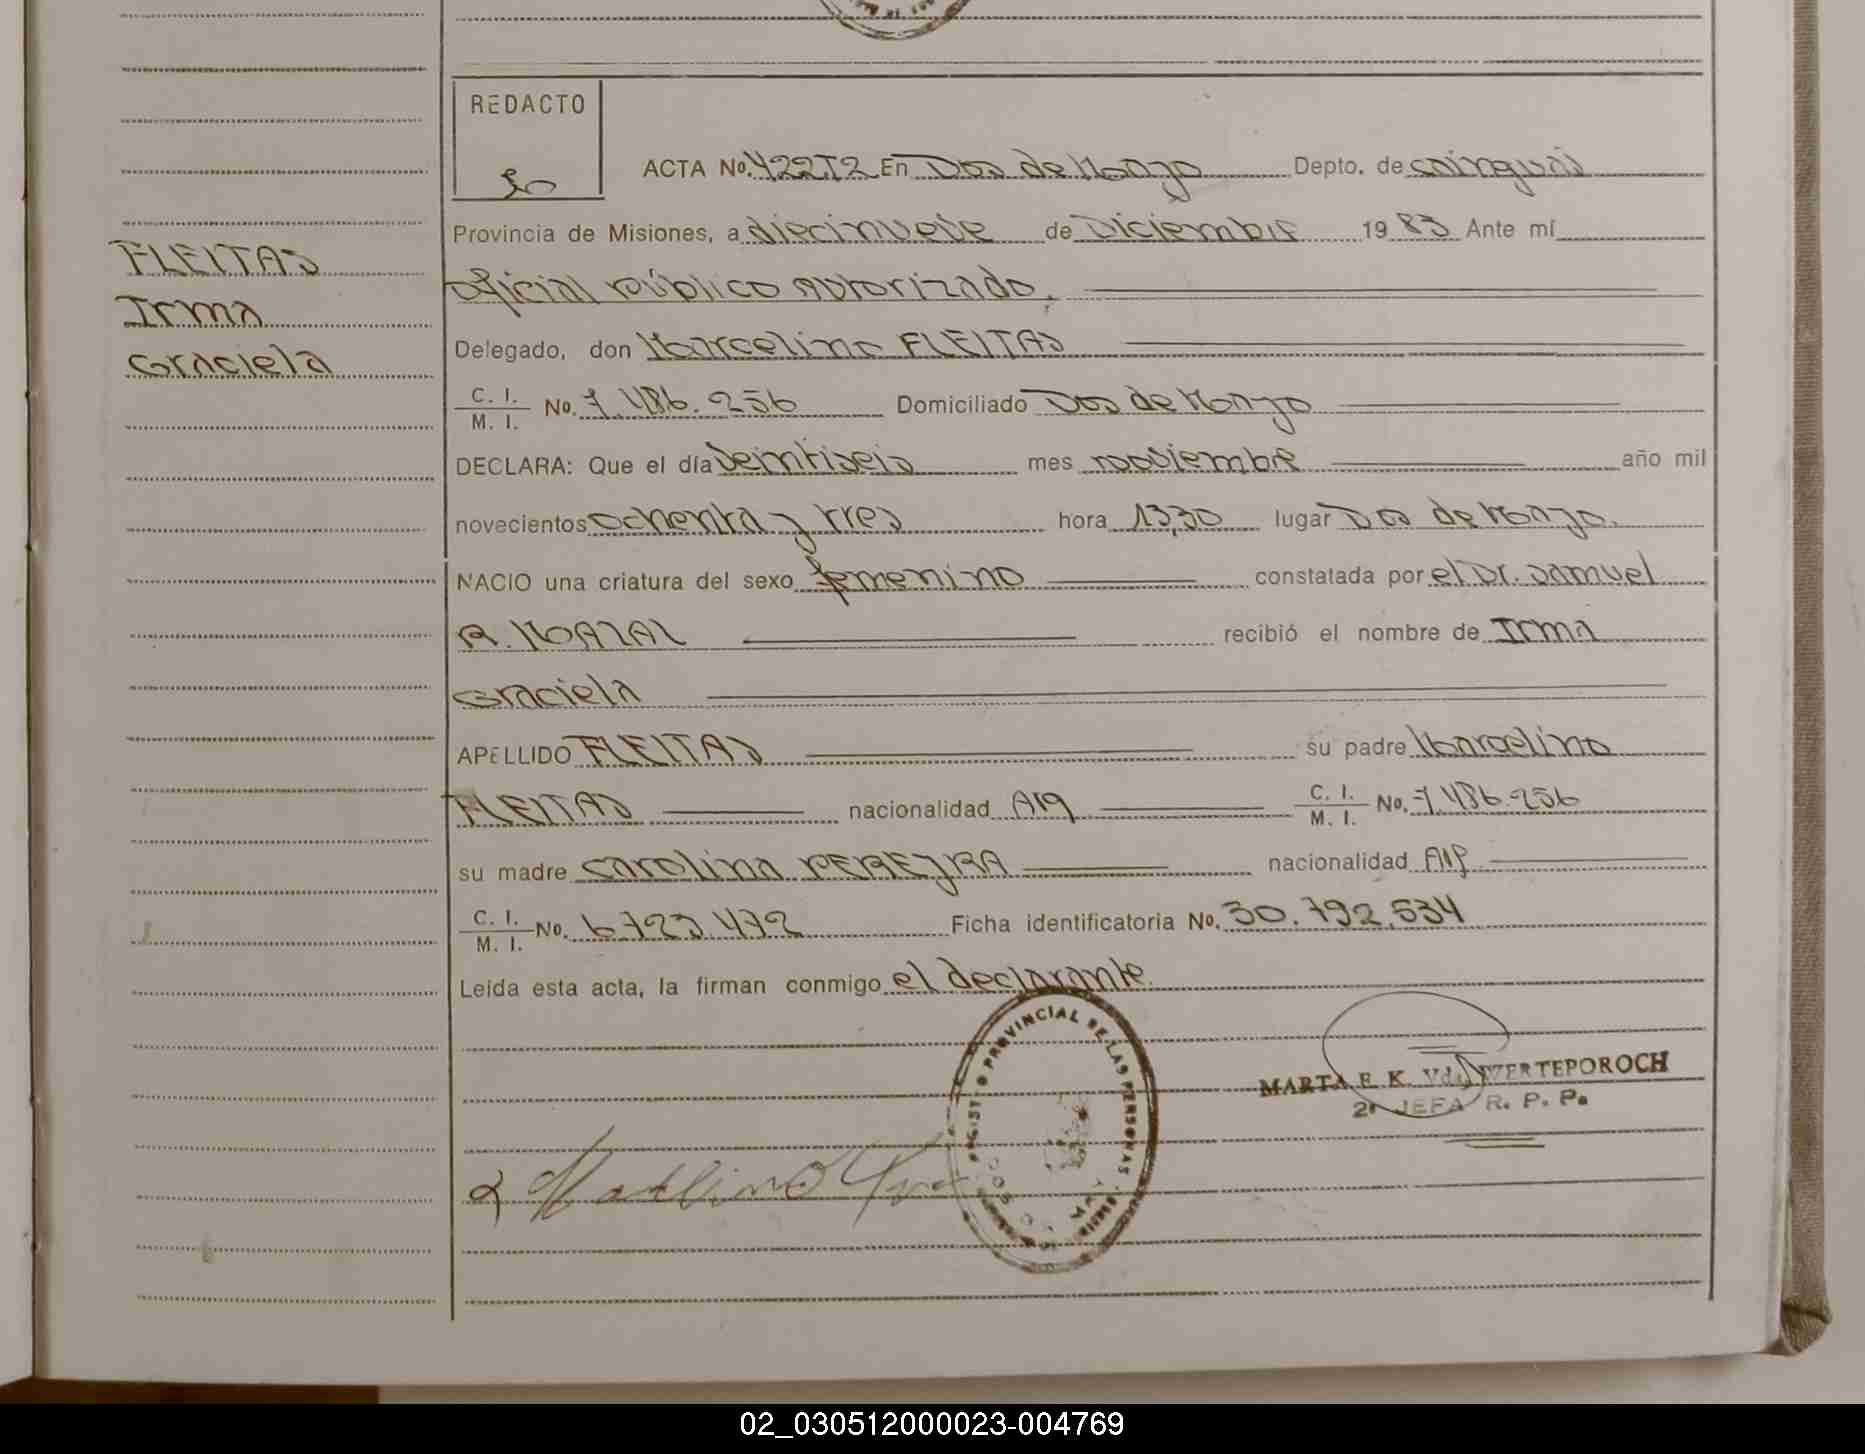 REDACTO
ACTA No. 422T2 En Dos de Mayo Depto. de cainguás
Provincia de Misiones, a diecinueve de Diciembre 1983 Ante mí
oficial público autorizado.
FLEITAS
Irma
Graciela
Delegado, don Marcelino FLEITAS
C. I.
M. I. No. 7.486.256 Domiciliado Dos de Mayo
DECLARA: Que el día veintiseis mes noviembre año mil
novecientos ochenta y tres hora 13,30 lugar Dos de Mayo.
NACIO una criatura del sexo femenino constatada por el Dr. Samuel
R. recibió el nombre de Irma
Graciela
APELLIDO FLEITAS su padre Marcelino
FLEITAS nacionalidad Arg C. I.
M. I. No. 7.486.256
su madre Carolina PEREYRA nacionalidad Arg
C. I.
M. I. No. 6.723.472 Ficha identificatoria No. 30.792.534
Leída esta acta, la firman conmigo el declarante.
REGISTRO PROVINCIAL DE LAS PERSONAS
MARTA E. K. Vda. WERTEPOROCH
JEFA R. P. P.
02_030512000023-004769